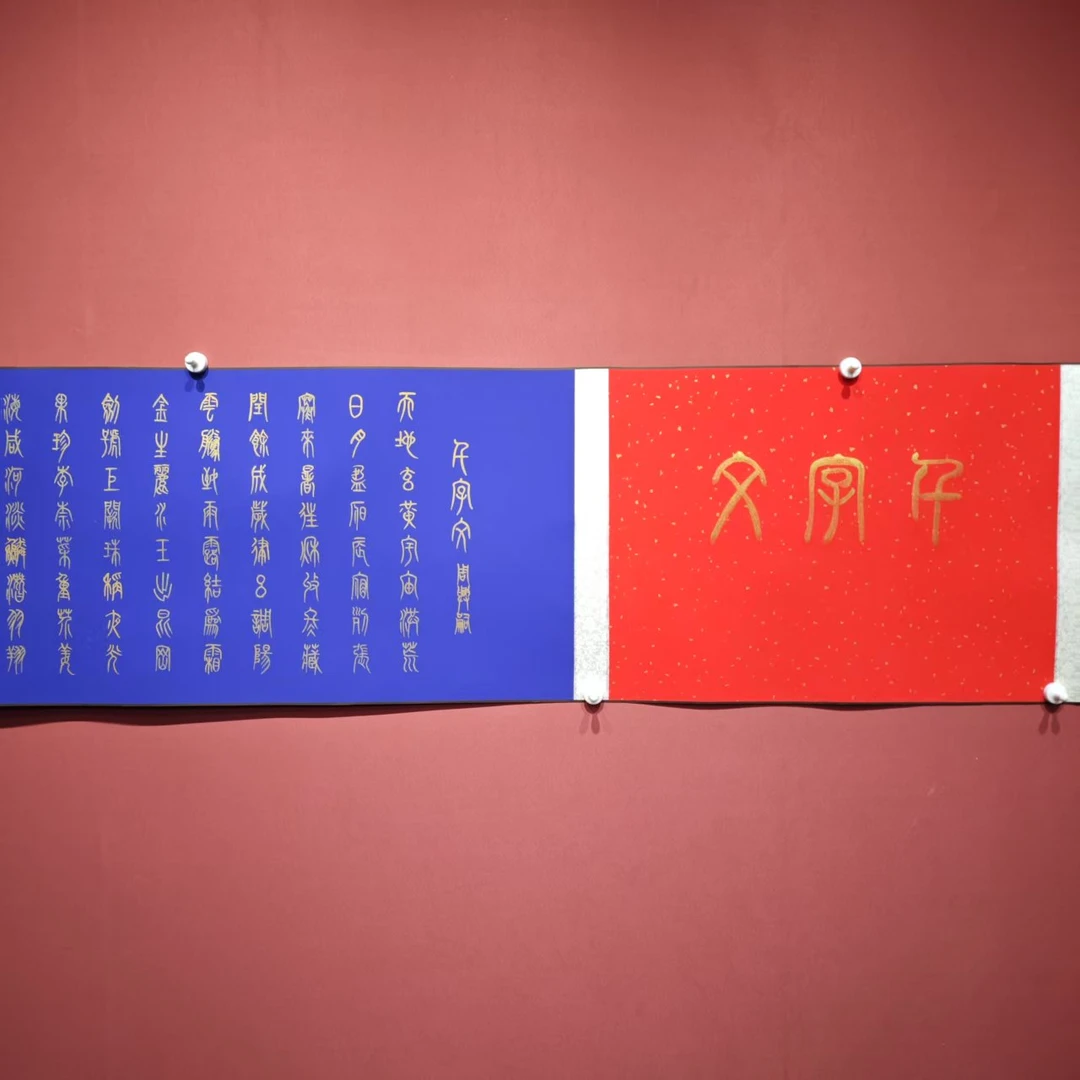 千字文
千字文 周興嗣
天地玄黃宇宙洪荒
日月盈昃辰宿列張
寒來暑往秋收冬藏
閏餘成歲律呂調陽
雲騰致雨露結為霜
金生麗水玉出昆岡
劍號巨闕珠稱夜光
果珍李柰菜重芥薑
海鹹河淡鱗潛羽翔